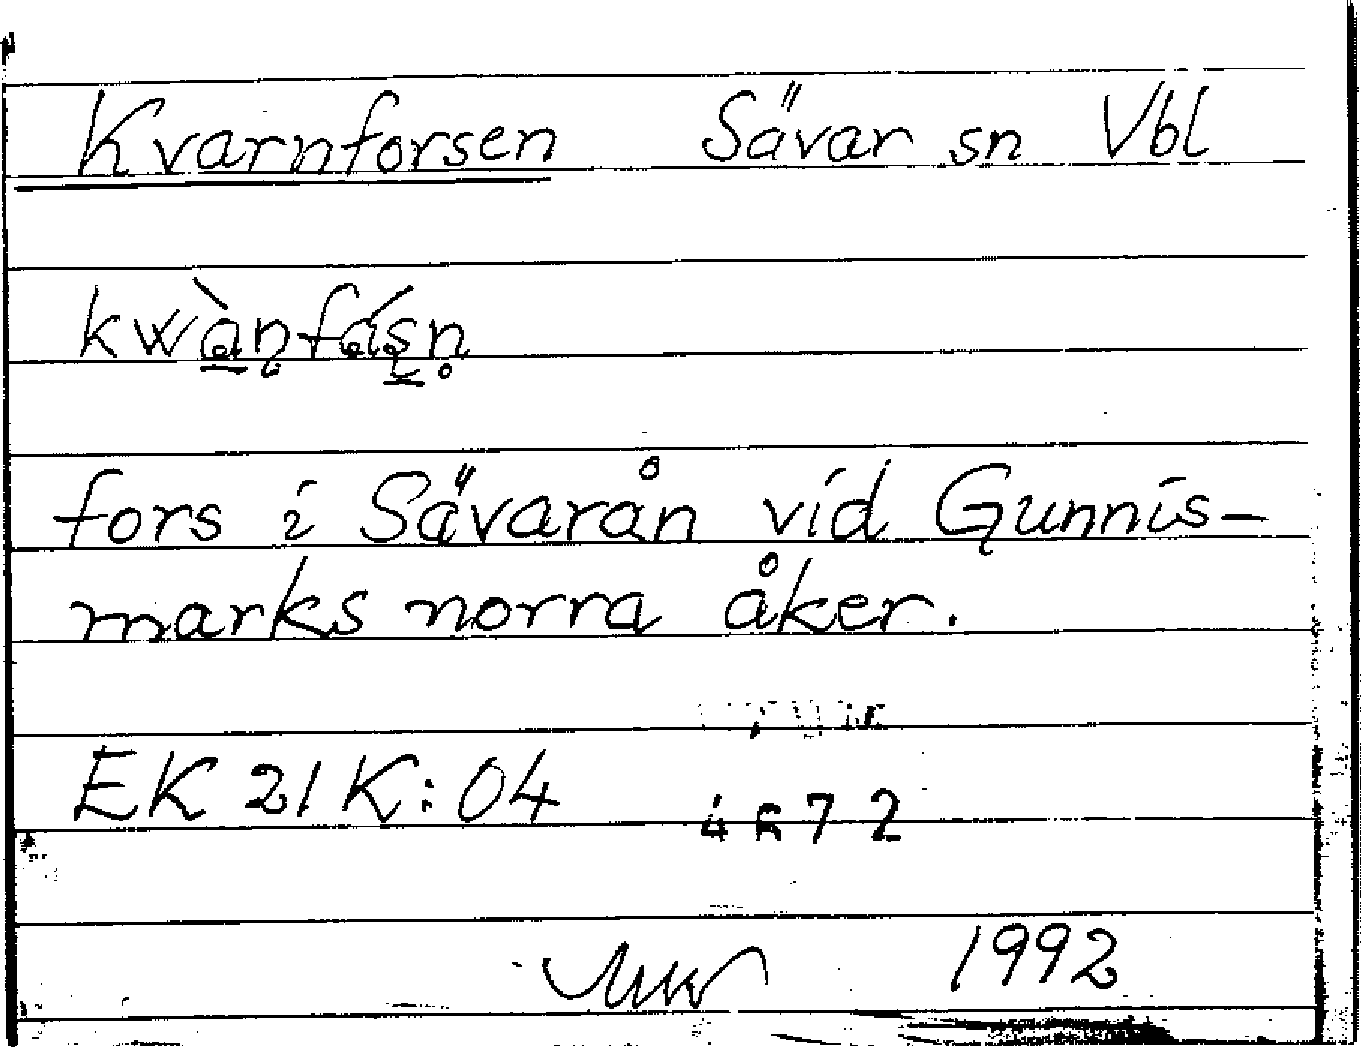 Kvarnforsen Sävar sn Vbl
kwànfásn̥
fors i Sävarån vid Gunnis-
marks norra åker.
EK 21 K:04 4672
1992